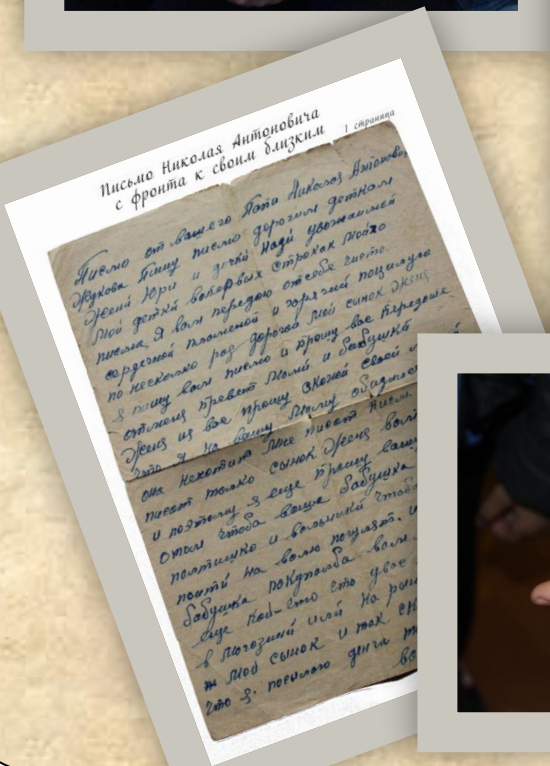 Письмо Николая Антоновича
с фронта к своим близким
1 страница
Писмо от вашего Папи Николая Антонович
Жукова Пишу писмо дорогим деткам
Жени Юри и дочки Нади уважаемей
Мои детки вопервых строках моíхо
писма Я вам передою отсебе чисто
сердечной пламеной и горячий поцилую
по несколко раз дорогой мой сынок Жень
Я пишу вам писмо и прошу вас
отменя превет Мами и бабушке
Жень из вас прошу скожи своей
что я на вашу Маму обидился
она нехотит мне писат писм
писат толко сынок Жень
и поэтому я еще прошу ваш
отом чтоба ваша бабушка
палтишко и
поити на волю
бабушка покупала вам
еще кой-что ето двое
в могозини или на рын
ж мой сынок и так ск
что я посилаю денги